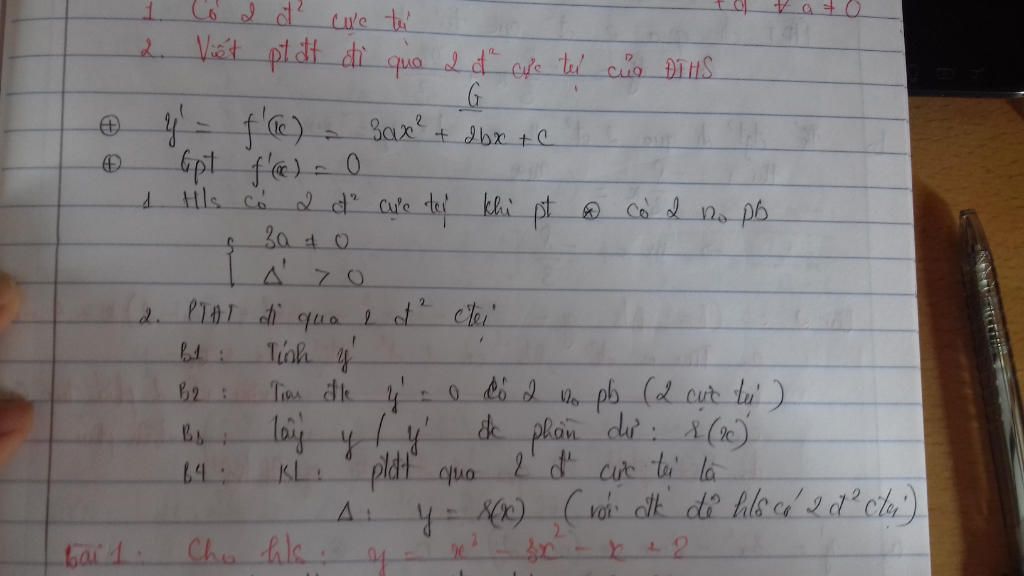 +d ∀ a ≠ 0
1. Có 2 đ² cực trị
2. Viết ptđt đi qua 2 đ² cực trị của ĐTHS
G
⊕ y' = f'(x) = 3ax² + 2bx + c
⊕ Gpt f'(x) = 0
1. Hls có 2 đ² cực trị khi pt ⊛ có 2 no pb
{ 3a ≠ 0
Δ' > 0
2. PTĐT đi qua 2 đ² ctrị
B1 : Tính y'
B2 : Tìm đk y' = 0 để 2 no pb (2 cực trị)
B3 : lấy y / y' đc phần dư : r(x)
B4 : KL : ptđt qua 2 đ² cực trị là
Δ : y = r(x) (với đk để hls có 2 đ² ctrị)
Bài 1 : Cho hls : y = x³ - 3x² - x + 2